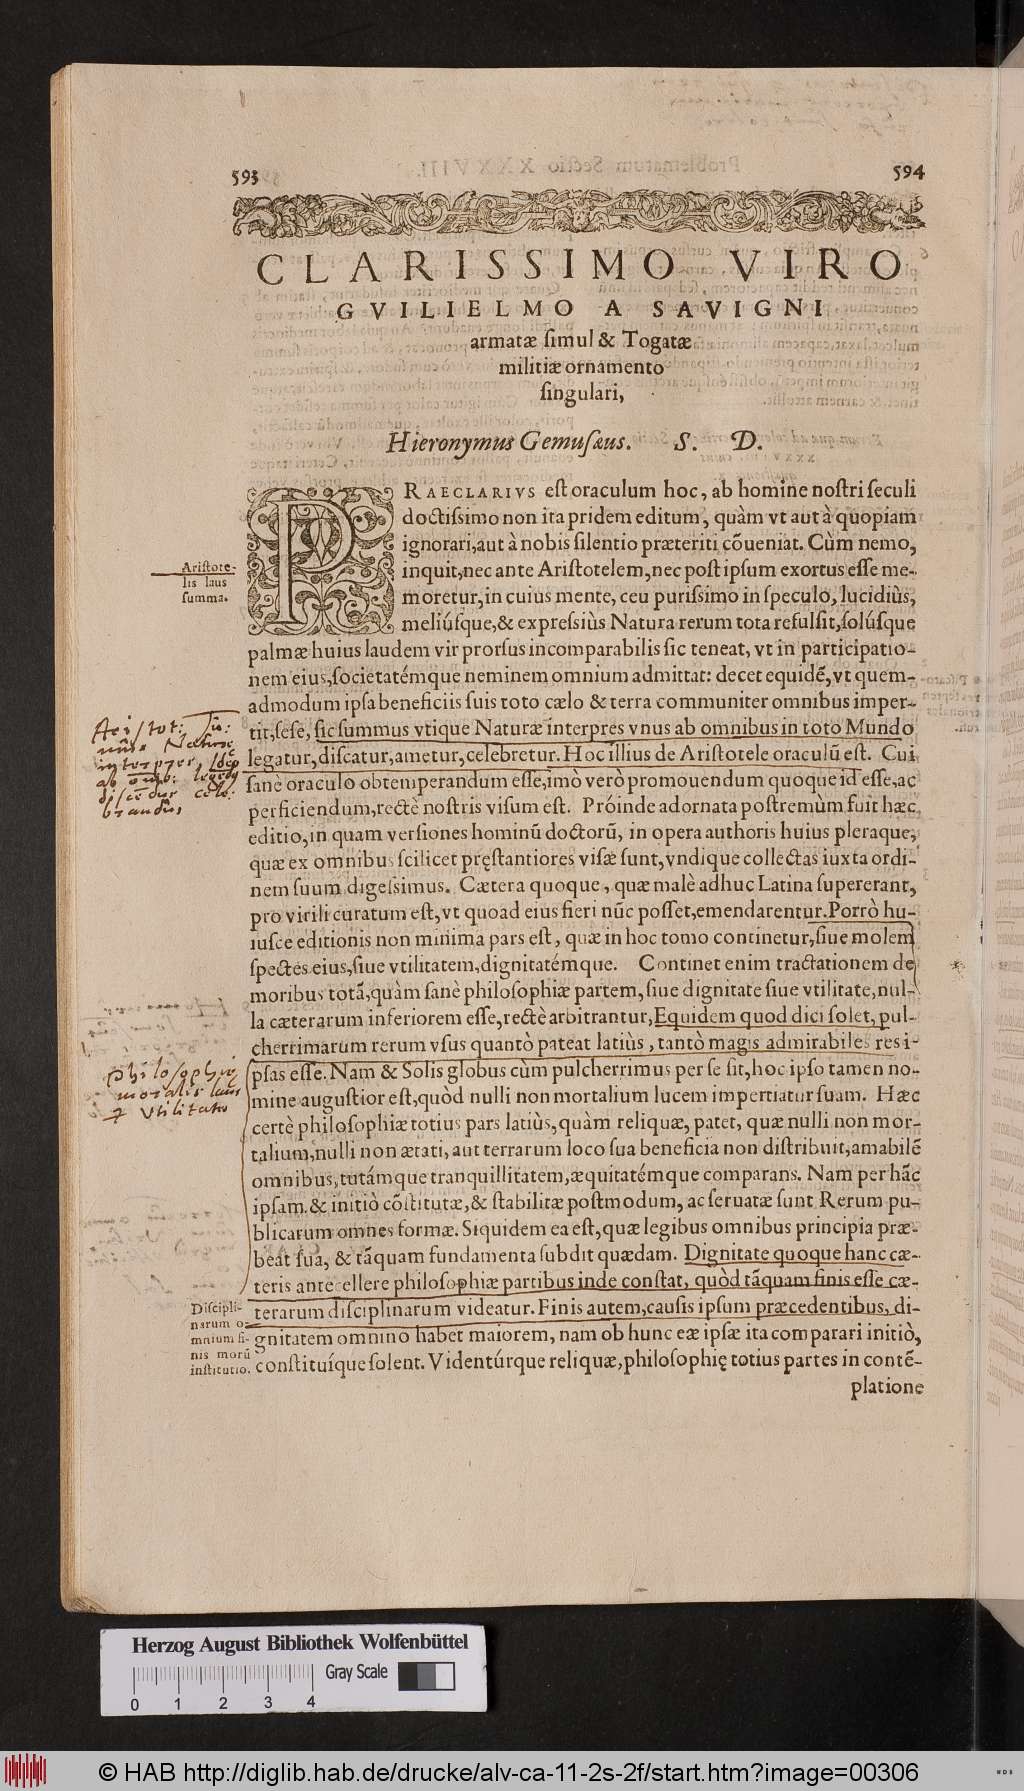 593
594
CLARISSIMO VIRO
GVILIELMO A SAVIGNI
armatæ ſimul & Togatæ
militiæ ornamento
ſingulari,
Hieronymus Gemuſæus. S. D.
PRAECLARIVS est oraculum hoc, ab homine nostri ſeculi
doctiſsimo non ita pridem editum, quàm vt aut à quopiam
ignorari, aut à nobis ſilentio præteriti cōueniat. Cùm nemo,
inquit, nec ante Aristotelem, nec post ipſum exortus eſſe me-
moretur, in cuius mente, ceu puriſsimo in ſpeculo, lucidiùs,
meliúſque, & expreſsiùs Natura rerum tota refulſit, ſolúſque
palmæ huius laudem vir prorſus incomparabilis ſic teneat, vt in participatio-
nem eius, ſocietatémque neminem omnium admittat: decet equidē, vt quem-
admodum ipſa beneficiis ſuis toto cælo & terra communiter omnibus imper-
tit, ſeſe, ſic ſummus vtique Naturæ interpres vnus ab omnibus in toto Mundo
legatur, diſcatur, ametur, celebretur. Hoc illius de Aristotele oraculū est. Cui
ſanè oraculo obtemperandum eſſe, imò verò promouendum quoque id eſſe, ac
perficiendum, rectè nostris viſum est. Próinde adornata postremùm fuit hæc
editio, in quam verſiones hominū doctorū, in opera authoris huius pleraque,
quæ ex omnibus ſcilicet pręstantiores viſæ ſunt, vndique collectas iuxta ordi-
nem ſuum digeſsimus. Cætera quoque, quæ malè adhuc Latina ſupererant,
pro virili curatum est, vt quoad eius fieri nūc poſſet, emendarentur. Porrò hu-
iuſce editionis non minima pars est, quæ in hoc tomo continetur, ſiue molem
ſpectes eius, ſiue vtilitatem, dignitatémque. Continet enim tractationem de
moribus totā, quàm ſanè philoſophiæ partem, ſiue dignitate ſiue vtilitate, nul-
la cæterarum inferiorem eſſe, rectè arbitrantur, Equidem quod dici ſolet, pul-
cherrimarum rerum vſus quantò pateat latiùs, tantò magis admirabiles res i-
pſas eſſe. Nam & Solis globus cùm pulcherrimus per ſe ſit, hoc ipſo tamen no-
mine augustior est, quòd nulli non mortalium lucem impertiatur ſuam. Hæc
certè philoſophiæ totius pars latiùs, quàm reliquæ, patet, quæ nulli non mor-
talium, nulli non ætati, aut terrarum loco ſua beneficia non distribuit, amabilē
omnibus, tutámque tranquillitatem, æquitatémque comparans. Nam per hāc
ipſam & initiò cōstitutæ, & stabilitæ postmodum, ac ſeruatæ ſunt Rerum pu-
blicarum omnes formæ. Siquidem ea est, quæ legibus omnibus principia præ-
beat ſua, & tāquam fundamenta ſubdit quædam. Dignitate quoque hanc cæ-
teris antecellere philoſophiæ partibus inde constat, quòd tāquam finis eſſe cæ-
terarum diſciplinarum videatur. Finis autem, cauſis ipſum præcedentibus, di-
gnitatem omnino habet maiorem, nam ob hunc eæ ipſæ ita comparari initiò,
constituíque ſolent. Videntúrque reliquæ, philoſophię totius partes in contē-
platione
Aristote-
lis laus
ſumma.
Aristot:
interpres
Philosophiæ
moralis laus
Vtilitatis
Diſcipli-
narum o-
mnium fi-
nis morū
institutio.
Herzog August Bibliothek Wolfenbüttel
Gray Scale
0 1 2 3 4
© HAB http://diglib.hab.de/drucke/alv-ca-11-2s-2f/start.htm?image=00306